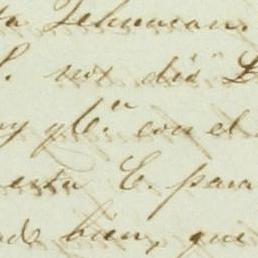 ta Tehuacan.
S. nos dió
y C.ª con el
esta C. para
de bien, que